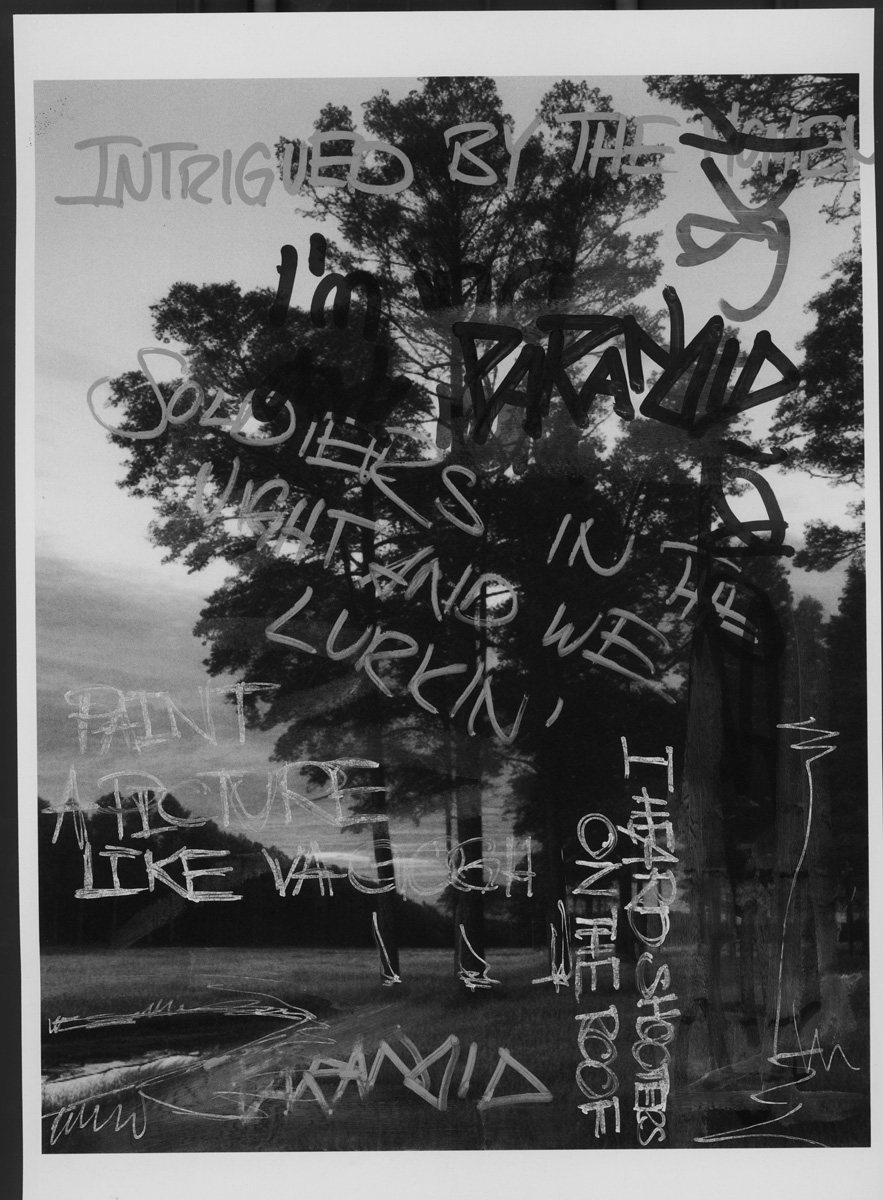 INTRIGUED BY THE WOMEN
I'm
PARANOID
SOLDIERS
IN THE
NIGHT AND WE
LURKIN'
PAINT
A PICTURE
LIKE VAN GOGH
I HEARD SHOOTERS
ON THE ROOF
PARANOID